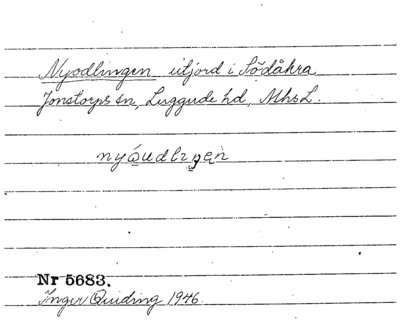 Nyodlingen utjord i Södåkra
Jonstorps sn, Luggude hd, Mhs L.
nyo̯udlıŋen
Nr 5683.
Inger Quiding 1946.